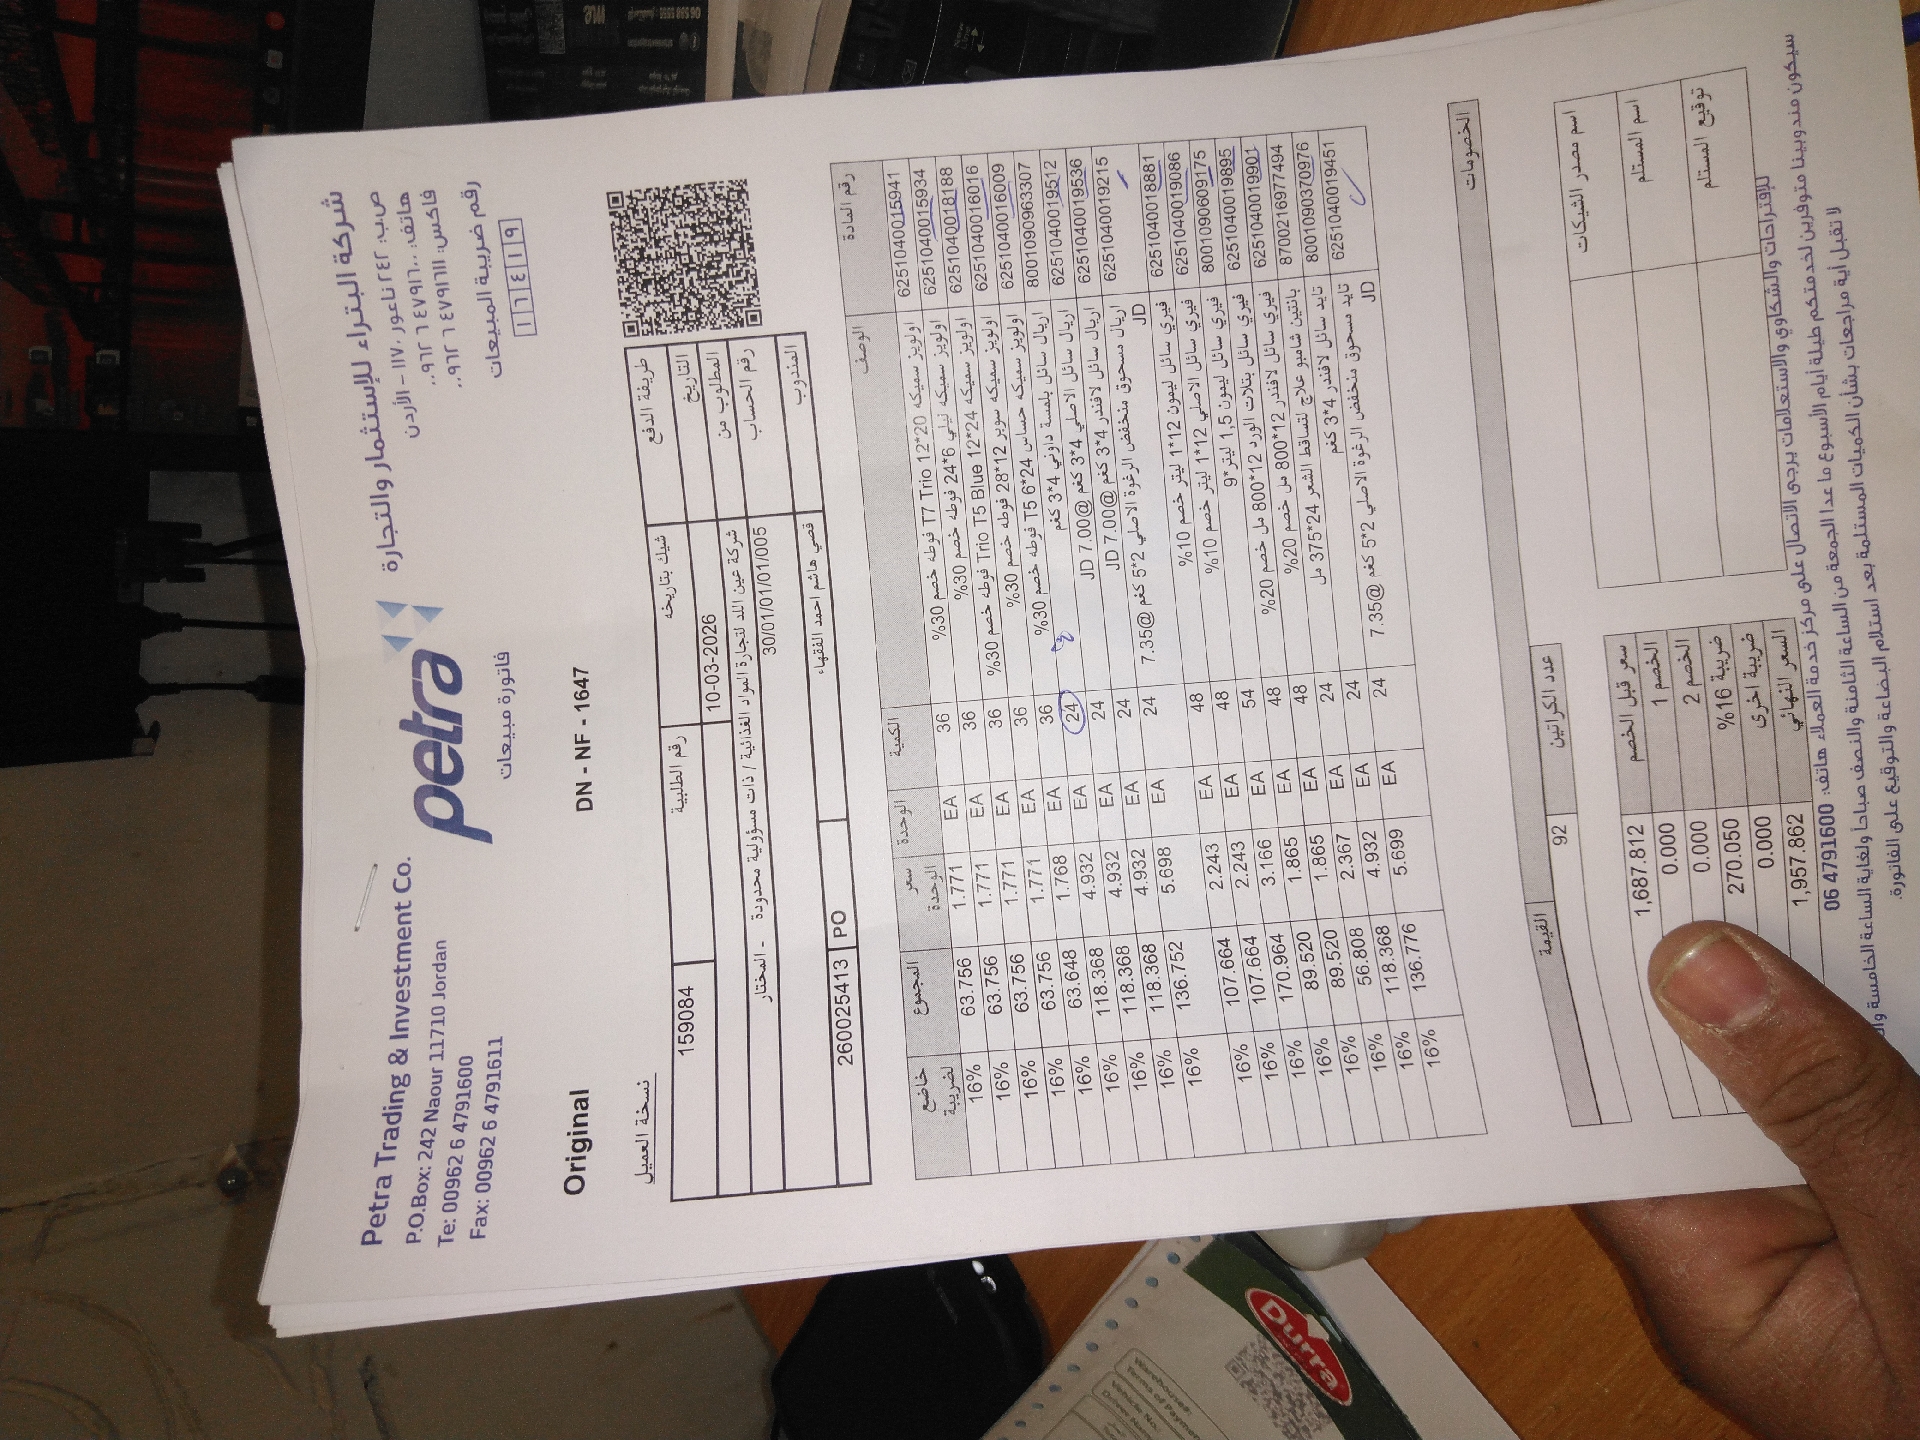 شركة البتراء للإستثمار والتجارة
ص.ب: ٢٤٢ ناعور ١١٧١٠ - الأردن
هاتف: ٤٧٩١٦٠٠ ٦ ٠٠٩٦٢
فاكس: ٤٧٩١٦١١ ٦ ٠٠٩٦٢
رقم ضريبة المبيعات
١ ٦ ٤ ١ ٩
petra
فاتورة مبيعات
Petra Trading & Investment Co.
P.O.Box: 242 Naour 11710 Jordan
Te: 00962 6 4791600
Fax: 00962 6 4791611
Original
DN - NF - 1647
نسخة العميل
طريقة الدفع شيك بتاريخه رقم الطلبية 159084
التاريخ 10-03-2026
المطلوب من شركة عين اللد لتجارة المواد الغذائية / ذات مسؤولية محدودة - المختار
رقم الحساب 30/01/01/01/005
المندوب قصي هاشم احمد الفقهاء PO 260025413
رقم المادة الوصف الكمية الوحدة سعر الوحدة المجموع خاضع لضريبة
6251040015941 اولويز سميكه T7 Trio 12*20 فوطه خصم 30% 36 EA 1.771 63.756 16%
6251040015934 اولويز سميكه ليلي 6*24 فوطه خصم 30% 36 EA 1.771 63.756 16%
6251040018188 اولويز سميكه Trio T5 Blue 12*24 فوطه خصم 30% 36 EA 1.771 63.756 16%
6251040016016 اولويز سميكه سوبر 12*28 فوطه خصم 30% 36 EA 1.771 63.756 16%
6251040016009 اولويز سميكه حساس T5 6*24 فوطه خصم 30% 36 EA 1.768 63.648 16%
8001090963307 اريال سائل بلمسة داوني 4*3 كغم 24 EA 4.932 118.368 16%
6251040019512 اريال سائل الاصلي 4*3 كغم @7.00 JD 24 EA 4.932 118.368 16%
6251040019536 اريال سائل لافندر 4*3 كغم @7.00 JD 24 EA 4.932 118.368 16%
6251040019215 اريال مسحوق منخفض الرغوة الاصلي 2*5 كغم @7.35 JD 24 EA 5.698 136.752 16%
6251040018881 فيري سائل ليمون 12*1 ليتر خصم 10% 48 EA 2.243 107.664 16%
6251040019086 فيري سائل الاصلي 12*1 ليتر خصم 10% 48 EA 2.243 107.664 16%
8001090609175 فيري سائل ليمون 1,5 ليتر*9 54 EA 3.166 170.964 16%
6251040019895 فيري سائل بتلات الورد 12*800 مل خصم 20% 48 EA 1.865 89.520 16%
6251040019901 فيري سائل لافندر 12*800 مل خصم 20% 48 EA 1.865 89.520 16%
8700216977494 بانتين شامبو علاج لتساقط الشعر 24*375 مل 24 EA 2.367 56.808 16%
8001090370976 تايد سائل لافندر 4*3 كغم 24 EA 4.932 118.368 16%
6251040019451 تايد مسحوق منخفض الرغوة الاصلي 2*5 كغم @7.35 JD 24 EA 5.699 136.776 16%
الخصومات القيمة
عدد الكراتين 92
اسم مصدر الشيكات
اسم المستلم
توقيع المستلم
سعر قبل الخصم 1,687.812
الخصم 1 0.000
الخصم 2 0.000
ضريبة 16% 270.050
ضريبة اخرى 0.000
السعر النهائي 1,957.862
للإقتراحات والشكاوي والاستعلامات يرجى الاتصال على مركز خدمة العملاء هاتف: 06 4791600
سيكون مندوبينا متوفرين لخدمتكم طيلة أيام الأسبوع ما عدا الجمعة من الساعة الثامنة والنصف صباحا ولغاية الساعة الخامسة
لا تقبل أية مراجعات بشأن الكميات المستلمة بعد استلام البضاعة والتوقيع على الفاتورة.
Durra
Warehouse:
Terms of Payment
Vehicle No: